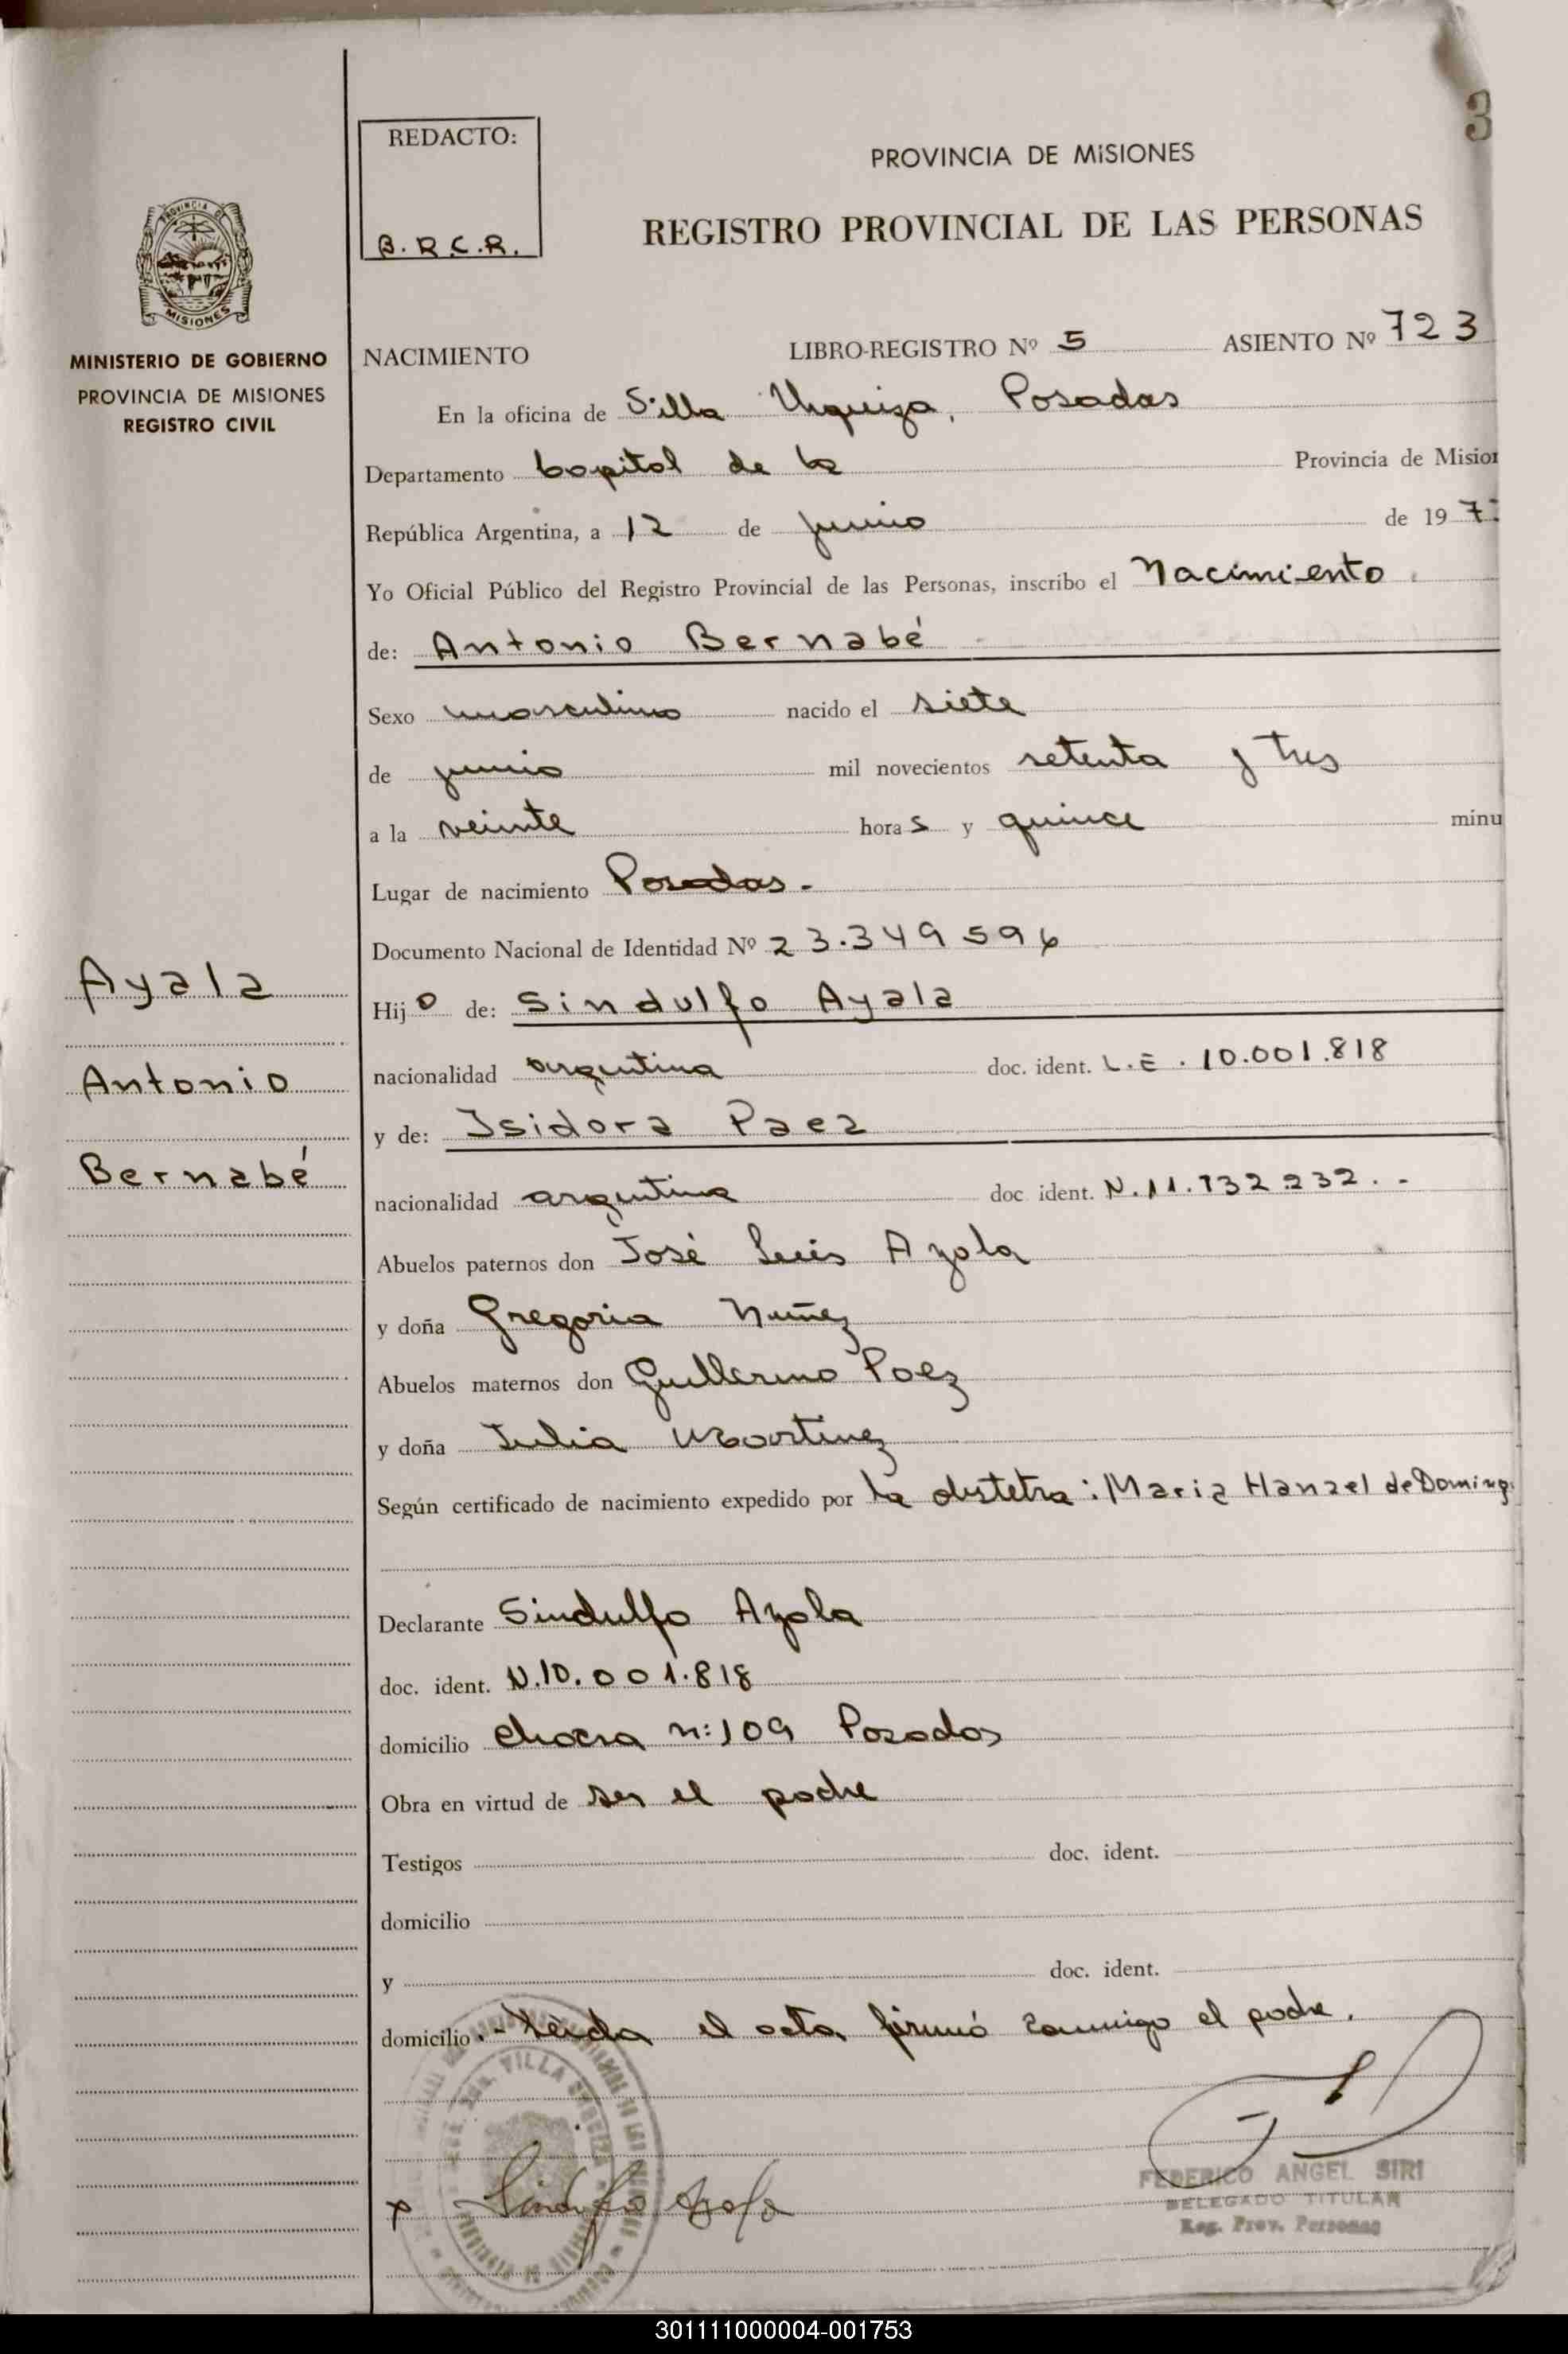 3
REDACTO:
B.R.C.R.
PROVINCIA DE MISIONES
REGISTRO PROVINCIAL DE LAS PERSONAS
PROVINCIA DE
MISIONES
MINISTERIO DE GOBIERNO
PROVINCIA DE MISIONES
REGISTRO CIVIL
NACIMIENTO LIBRO-REGISTRO Nº 5 ASIENTO Nº 723
En la oficina de Villa Urquiza, Posadas
Departamento Capital de la Provincia de Mision
República Argentina, a 12 de junio de 197
Yo Oficial Público del Registro Provincial de las Personas, inscribo el Nacimiento
de: Antonio Bernabé
Sexo masculino nacido el siete
de junio mil novecientos setenta y tres
a la veinte horas y quince minu
Lugar de nacimiento Posadas.-
Documento Nacional de Identidad Nº 23.349596
Ayala
Antonio
Bernabé
Hijo de: Sindulfo Ayala
nacionalidad argentina doc. ident. L.E. 10.001.818
y de: Isidora Paez
nacionalidad argentina doc ident. N.11.732232.-
Abuelos paternos don José Luis Ayala
y doña Gregoria Nuñez
Abuelos maternos don Guillermo Paez
y doña Julia Martinez
Según certificado de nacimiento expedido por la obstetra: Maria Hanzel de Doming
Declarante Sindulfo Ayala
doc. ident. N.10.001.818
domicilio Chacra n:109 Posadas
Obra en virtud de ser el padre
Testigos doc. ident.
domicilio
y doc. ident.
domicilio.- Leida el acta firmó conmigo el padre.
VILLA URQUIZA
Sindulfo Ayala
FEDERICO ANGEL SIRI
DELEGADO TITULAR
Reg. Prov. Personas
301111000004-001753